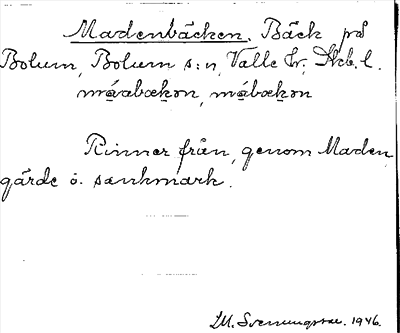 Madenbäcken. Bäck på
Bolum, Bolum s:n, Valle hr, Skb. l.
Rinner från, genom Maden,
gärde o. sankmark.
M. Svenungsson. 1946.